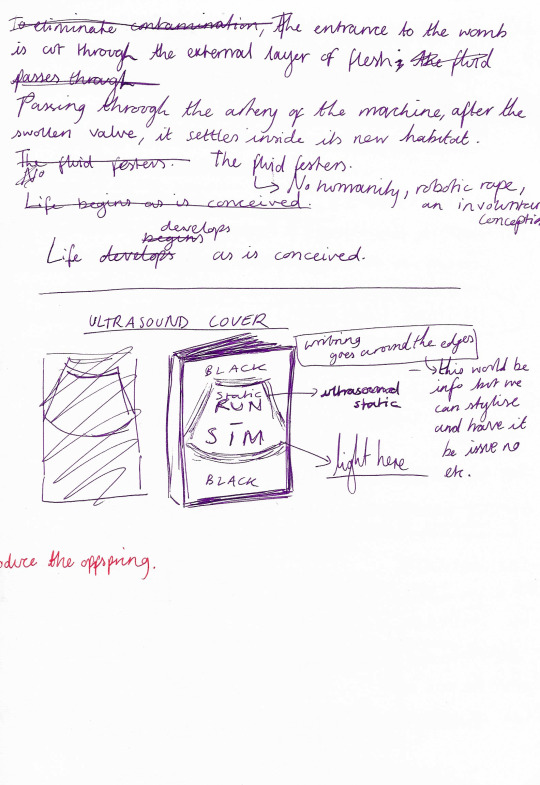 To eliminate contamination, The entrance to the womb
is cut through the external layer of flesh; The fluid
passes through
Passing through the artery of the machine, after the
swollen valve, it settles inside its new habitat.
The fluid festers. The fluid festers.
No
No humanity, robotic rape,
Life begins as is conceived. an involuntary
conception
develops
begins
Life develops as is conceived.
ULTRASOUND COVER
writing
goes around the edges
BLACK
this would be
Static
ultrasound
info but we
RUN
static
can stylise
–
and have it
SIM
be issue no
light here
etc.
BLACK
oduce the offspring.